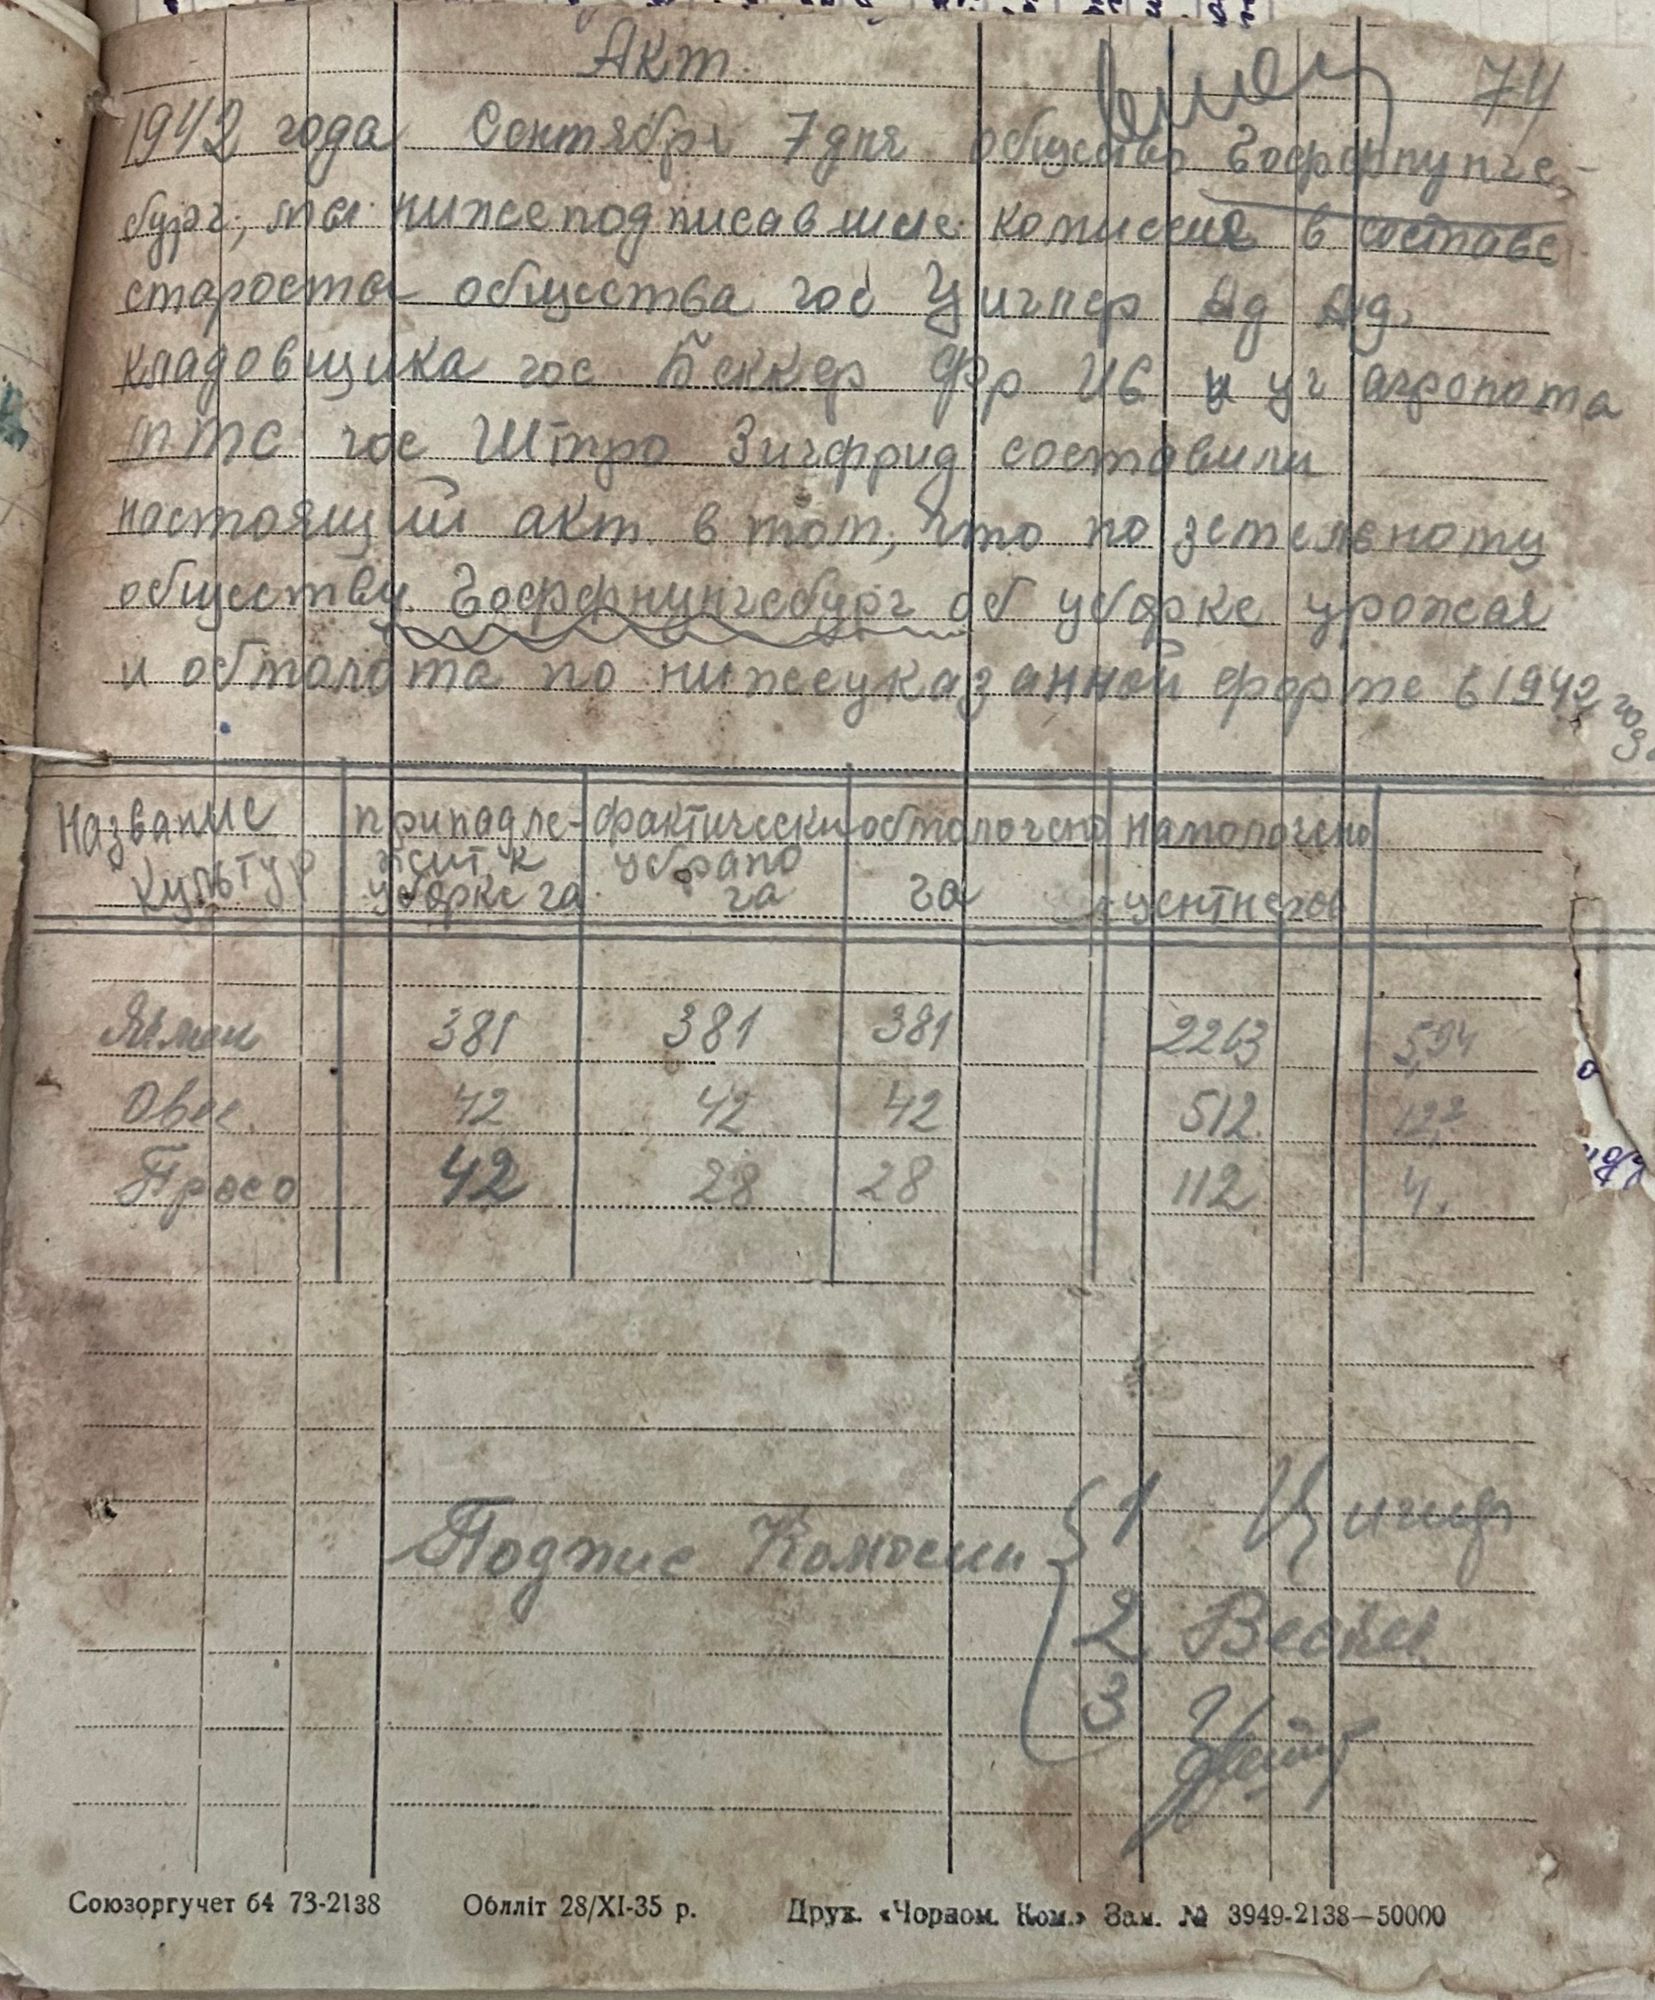 Акт.
74
1942 года Сентября 7 дня общество Гоффнунгс-
бург, мы нижеподписавшие комиссия в составе
старосты общества гос Цигнер Ад Ад.
кладовщика гос Беккер Фр Ив и уч агронома
МТС гос Штро Зигфрид составили
настоящий акт в том, что по земельному
обществу Гоффнунгсбург об уборке урожая
и обмолота по нижеуказанной форме в 1942 года
Название культур принадле-жит к уборке га фактически убрано га обмолочено га намолочено центнеров
Ячмен 381 381 381 2263 5,94
Овес 42 42 42 512 12,2
Просо 42 28 28 112 4.
Подпис Комосии 1 Цигнер
2 Becker
3
Союзоргучет 64 73-2138 Облліт 28/XI-35 р. Друк. «Чорном. Ком.» Зам. № 3949-2138—50000